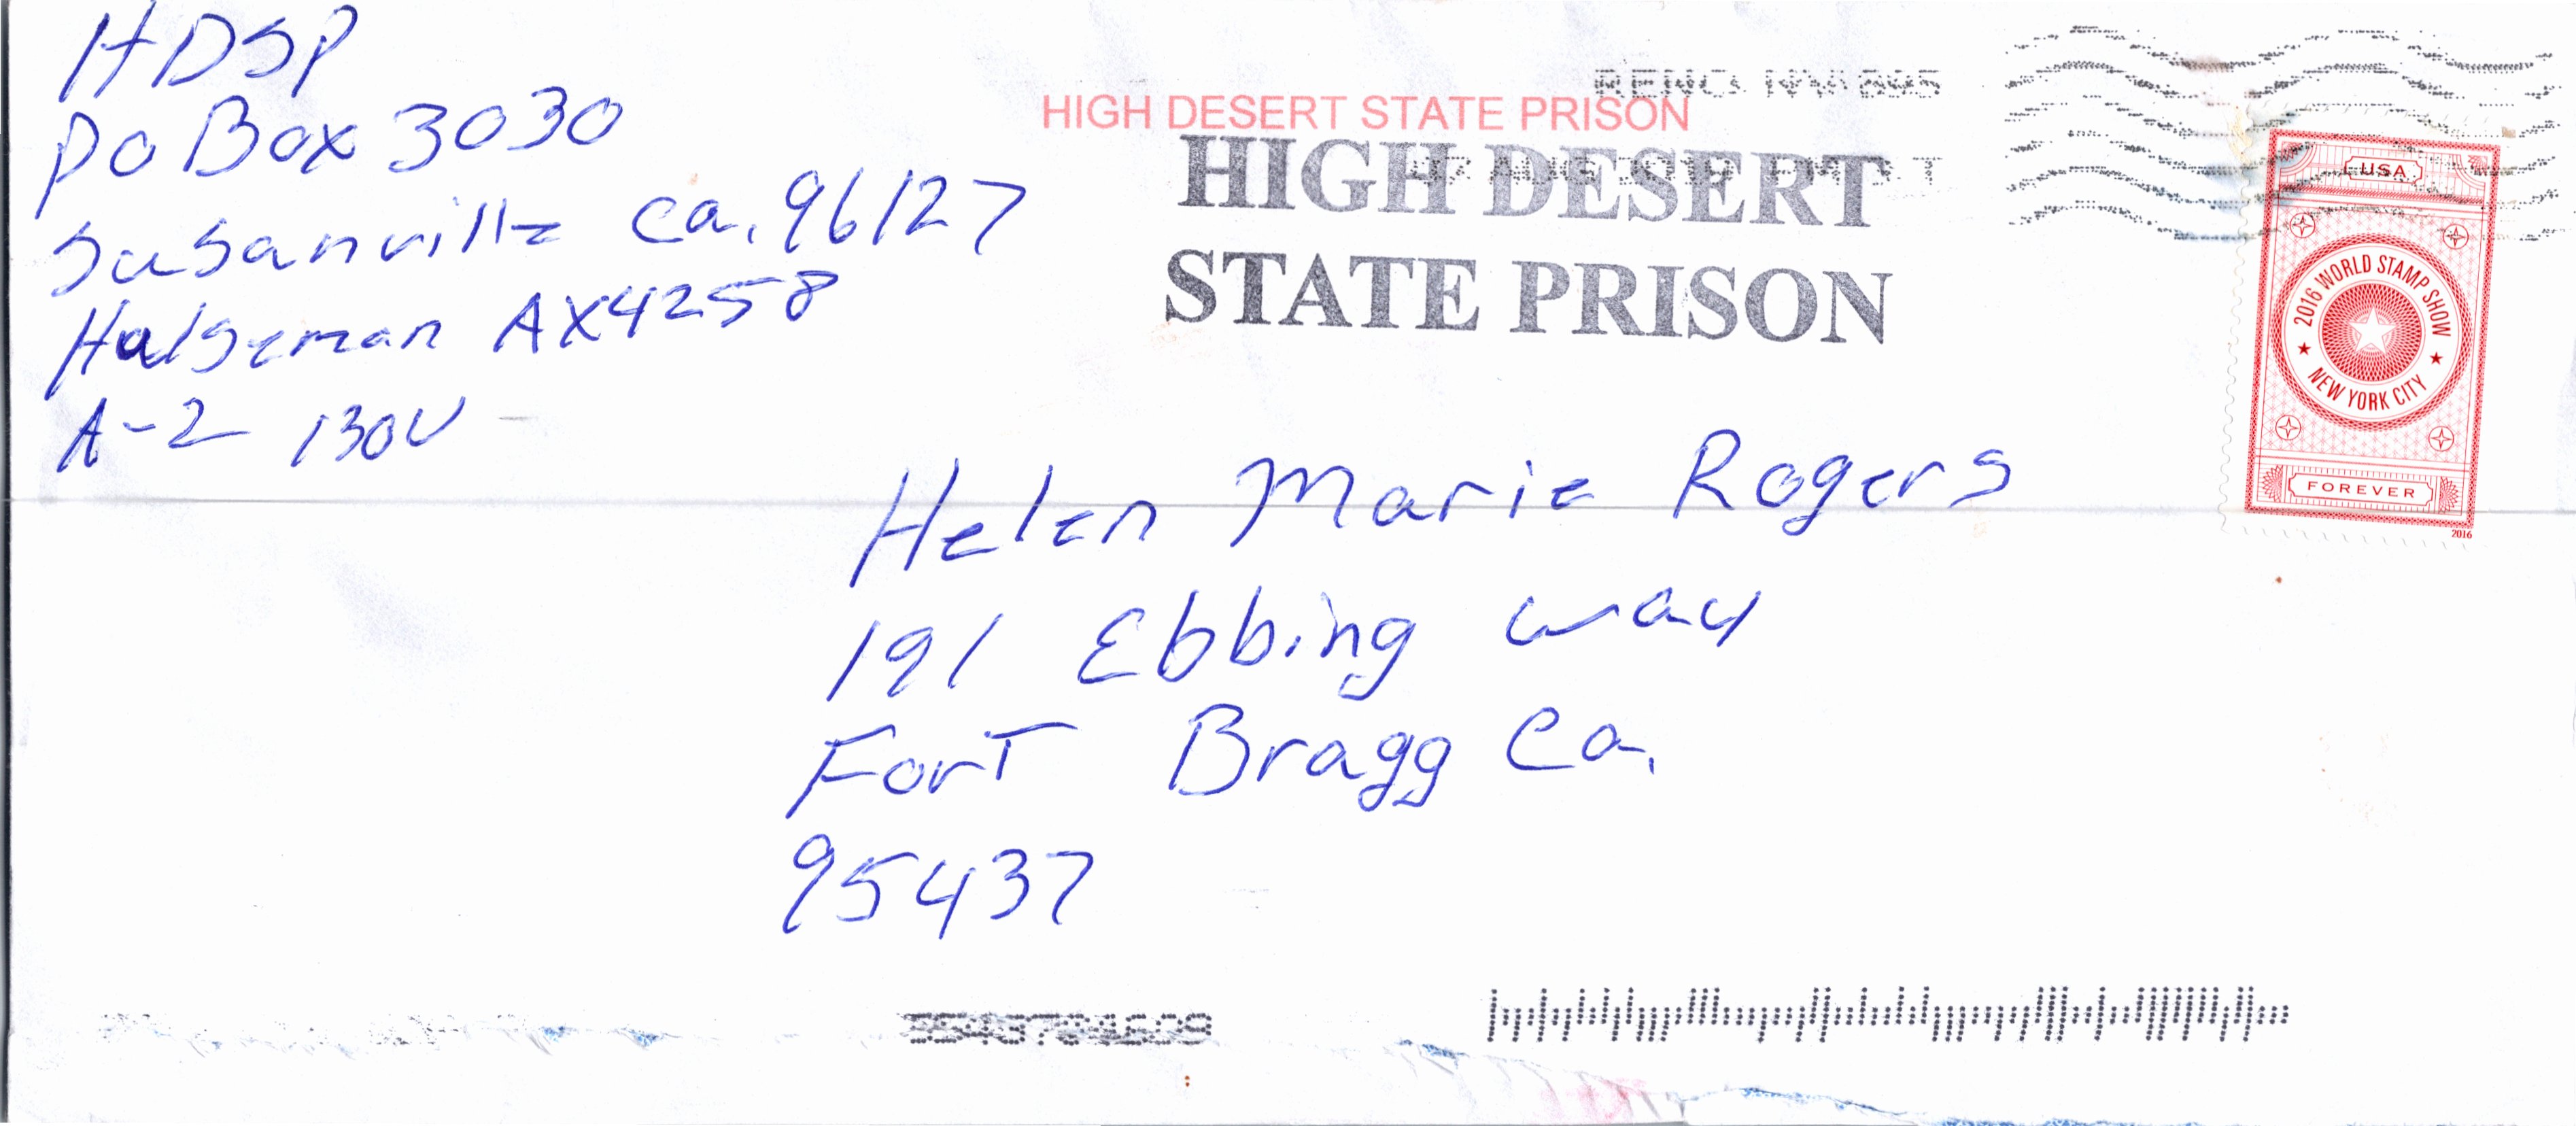 HDSP
PO Box 3030
Susanville Ca. 96127
Halseman AX4258
A-2 130U
HIGH DESERT STATE PRISON
HIGH DESERT
STATE PRISON
RENO NV 895
USA
2016 WORLD STAMP SHOW
NEW YORK CITY
FOREVER
2016
Helen Marie Rogers
191 Ebbing way
Fort Bragg Ca.
95437